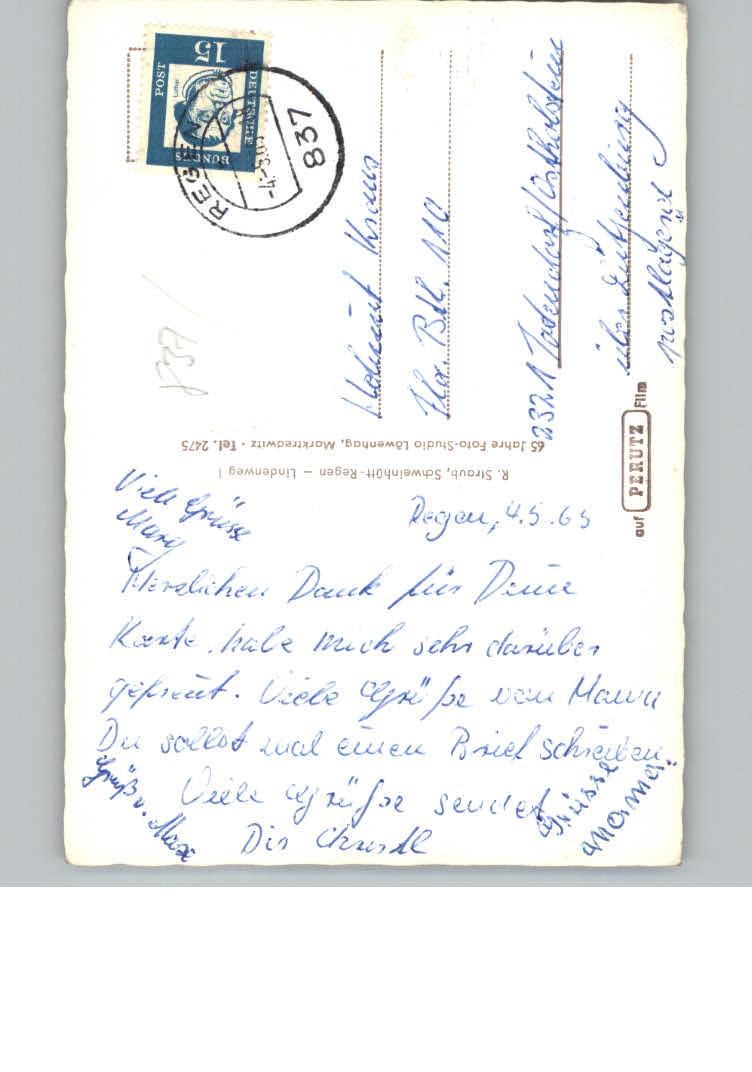 Regen, 4.5.65
Viele Grüsse
Mary
Herzlichen Dank für Deine
Karte, habe mich sehr darüber
gefreut. Viele Grüße von Mama
Du sollst mal einen Brief schreiben.
Viele Grüße sendet
Dir Christl
Gruß v. Max
Grüsse
Mama
Helmut Kraus
Btl. 110
2321 Todendorf/Ostholstein
über Lütjenburg
postlagernd
15
DEUTSCHE
BUNDES
POST
Luther
REGEN
837
837
R. Straub, Schweinhütt-Regen — Lindenweg 1
65 Jahre Foto-Studio Löwenhag, Marktredwitz · Tel. 2475
auf PERUTZ Film